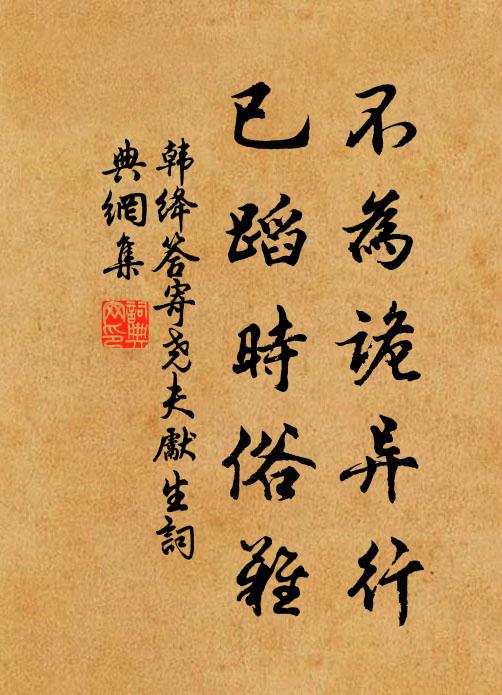 不為詭异行
已蹈時俗難
韩绛答寄尧夫獻生詞
典網集
詞典网印